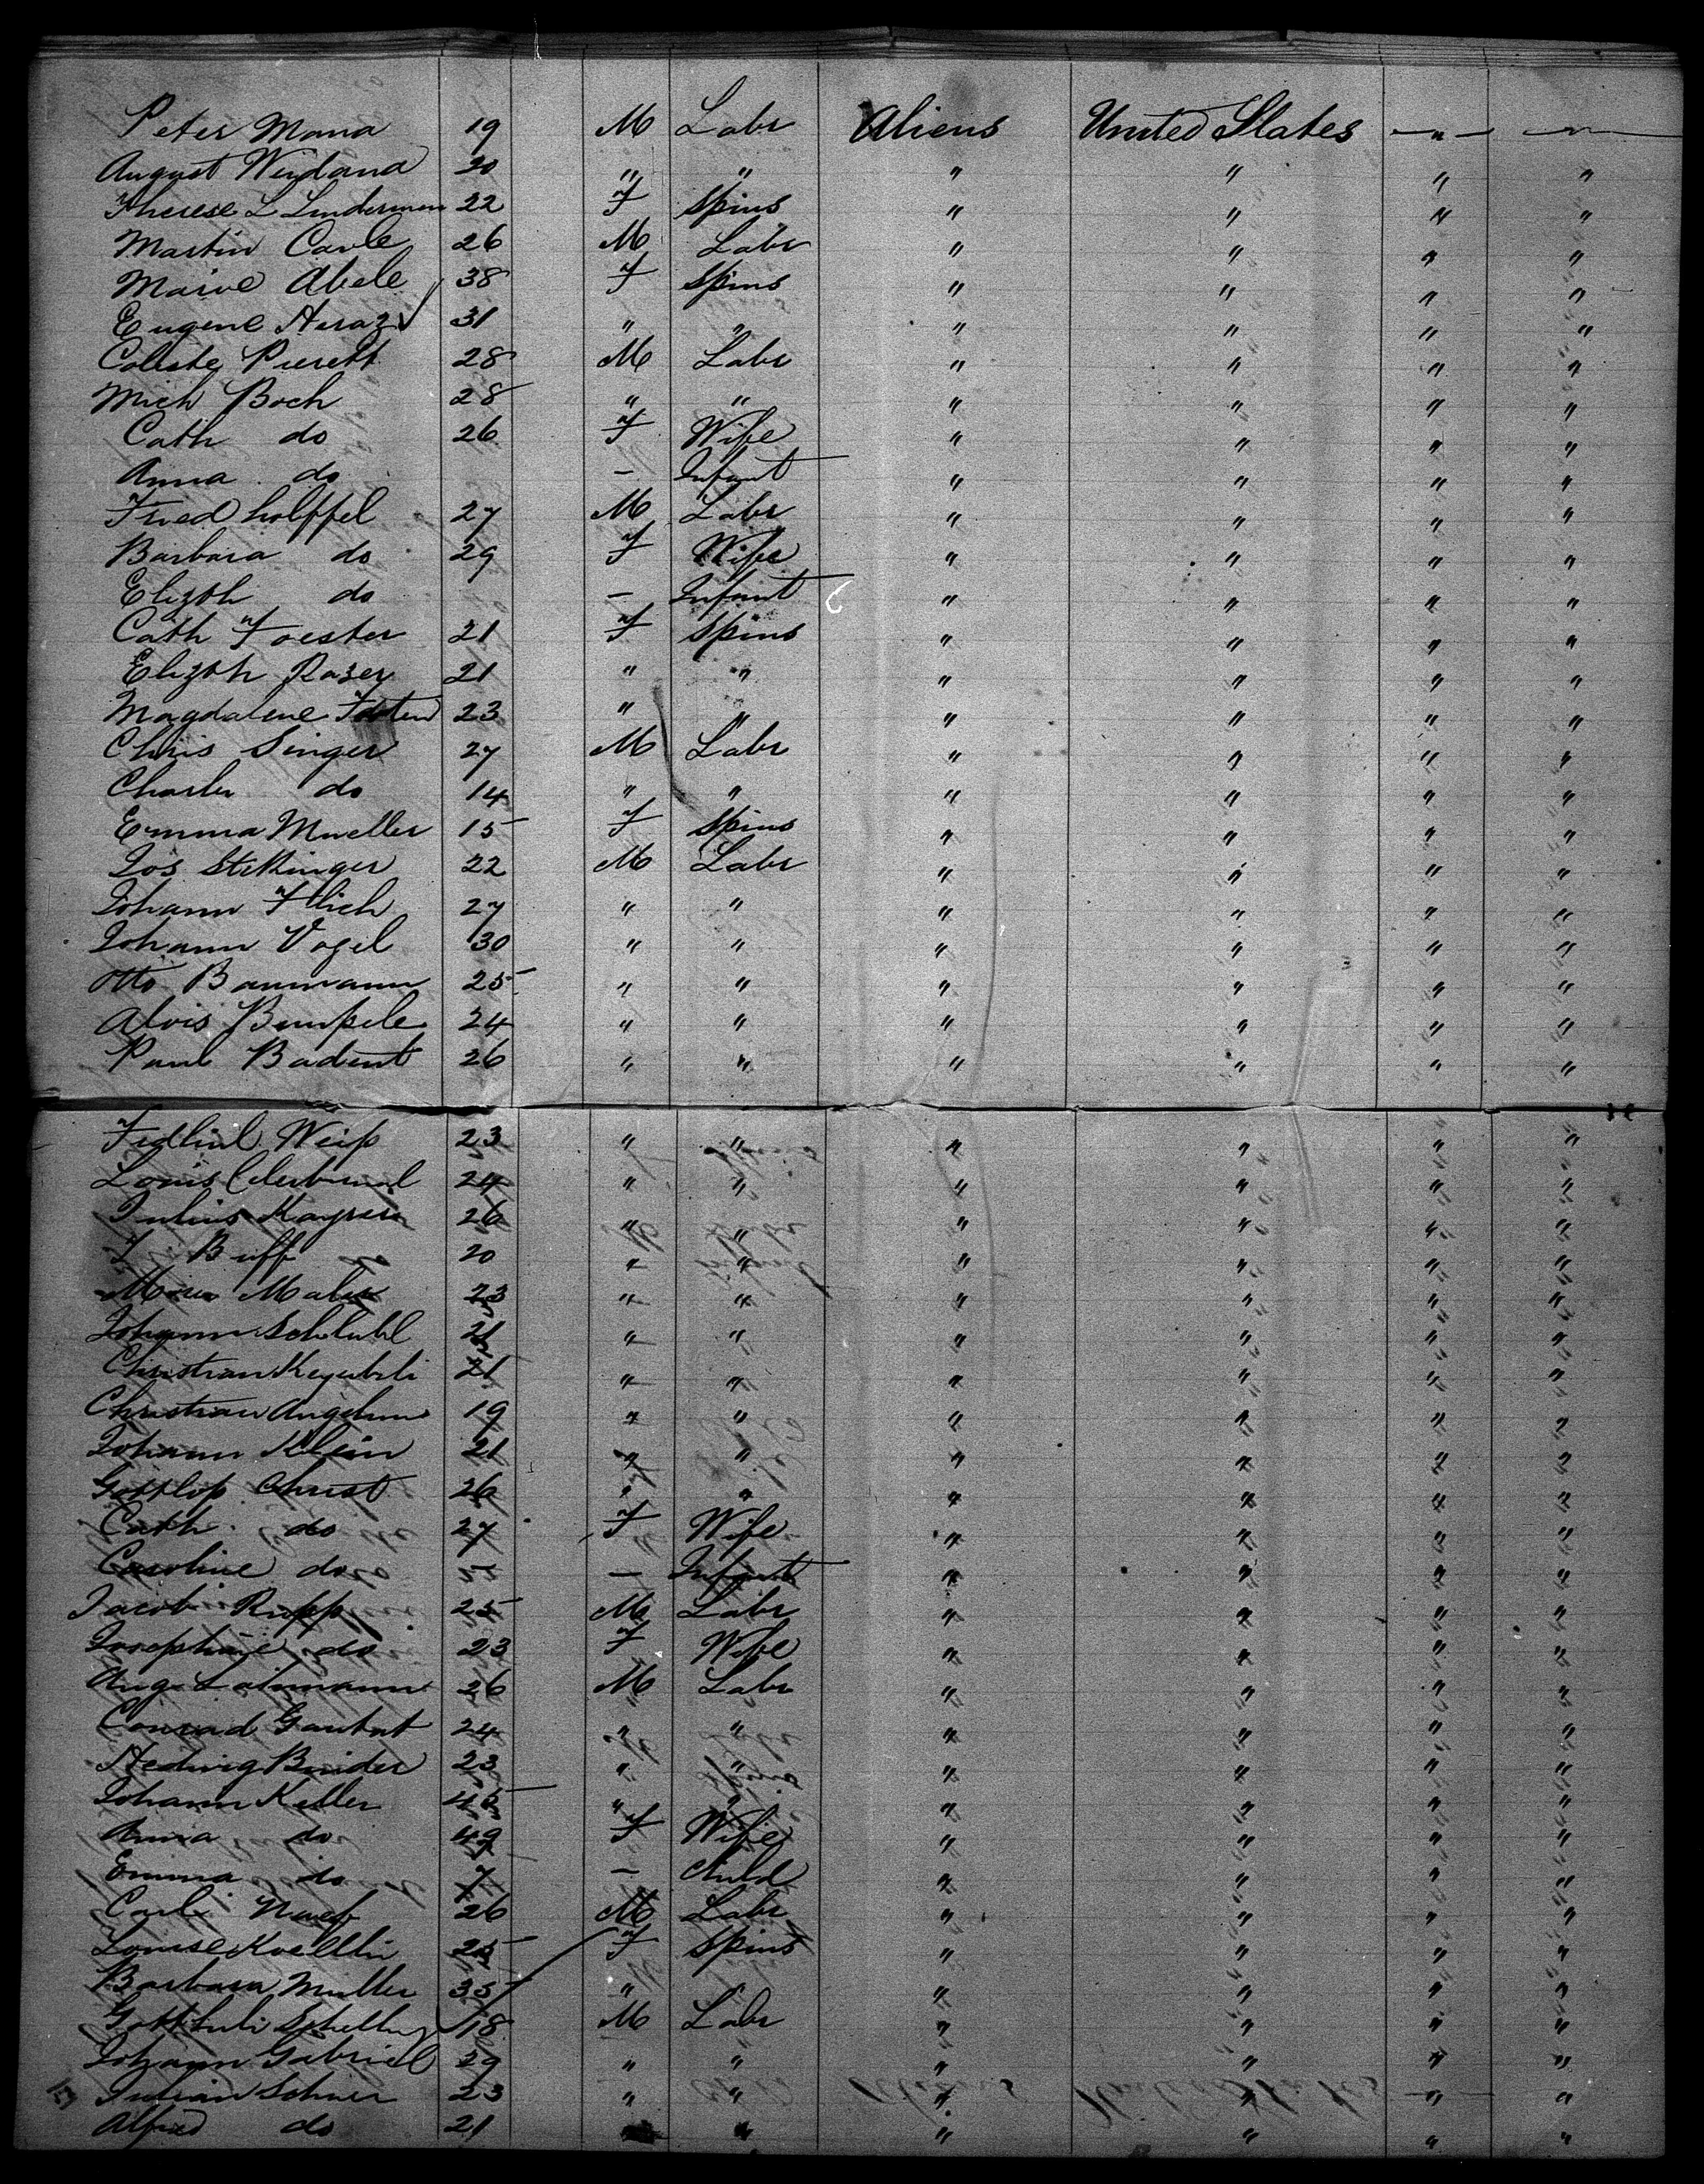 Peter Mana 19 M Labr Aliens United States — " — — " —
August Weydand 20 " " " " " "
Therese L Linderman 22 F Spins " " " "
Martin Carle 26 M Labr " " " "
Marie Abele 38 F Spins " " " "
Eugene Heraz 31 " " " " " "
Celeste Pierett 28 M Labr " " " "
Mich Boch 28 " " " " " "
Cath do 26 F Wife " " " "
Anna do — Infant " " " "
Fried holffel 27 M Labr " " " "
Barbara do 29 F Wife " " " "
Elizbh do — Infant " " " "
Cath Foester 21 F Spins " " " "
Elizbh Razer 21 " " " " " "
Magdalene 23 " " " " " "
Chris Singer 27 M Labr " " " "
Charles do 14 " " " " " "
Emma Mueller 15 F Spins " " " "
Jos 22 M Labr " " " "
Johann 27 " " " " " "
Johann Vogel 30 " " " " " "
Otto Baumann 25 " " " " " "
Alois Bumpele 24 " " " " " "
Paul Badent 26 " " " " " "
Weiss 23 " " " " " "
Louis 24 " " " " " "
Julius Kayser 26 " " " " " "
J Buff 20 " " " " " "
Maler 23 " " " " " "
Johann 21 " " " " " "
Christian 21 " " " " " "
Christian 19 " " " " " "
Johann Klein 21 " " " " " "
Gottlop Christ 26 " " " " " "
Cath do 27 F Wife " " " "
Caroline do — Infant " " " "
Jacob Rupp 25 M Labr " " " "
Josephine do 23 F Wife " " " "
Aug Lahmann 26 M Labr " " " "
Conrad 24 " " " " " "
Hedwig Binder 23 " " " " " "
Johann Keller 45 " " " " " "
Anna do 49 F Wife " " " "
Emma do 7 — Child " " " "
Carl Naef 26 M Labr " " " "
Louise Koellin 25 F Spins " " " "
Barbara Muller 35 " " " " " "
Schelling 18 M Labr " " " "
Johann Gabriel 29 " " " " " "
Julian 23 " " " " " "
Alfred do 21 " " " " "